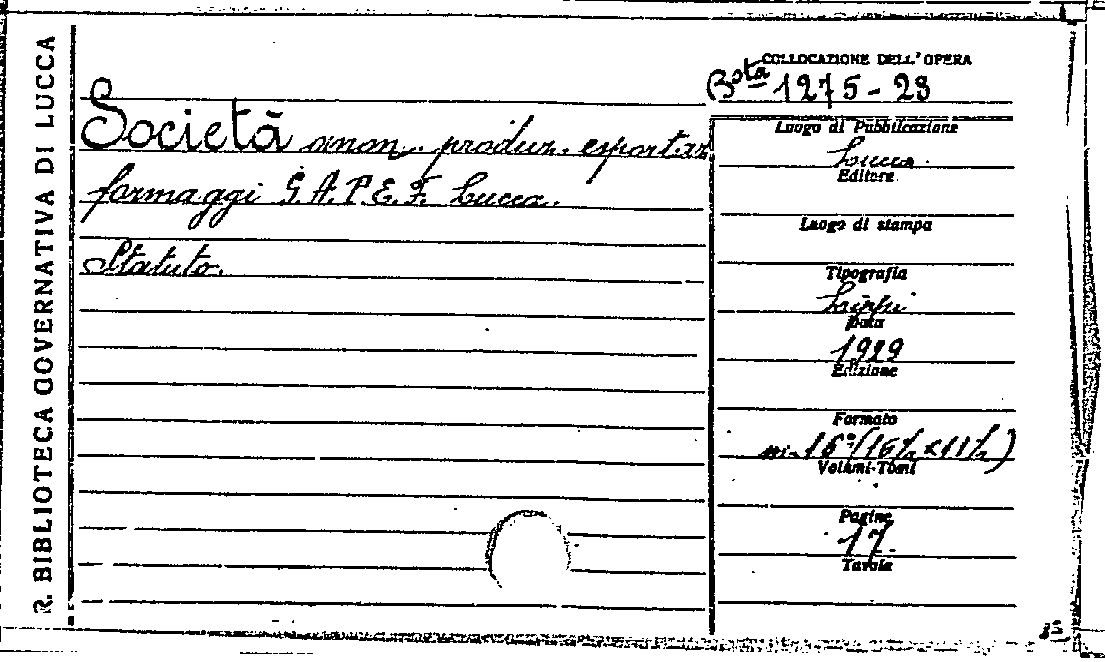 R. BIBLIOTECA GOVERNATIVA DI LUCCA
COLLOCAZIONE DELL'OPERA
Bsta 1275-23
Società anon. produz. esportaz
formaggi S.A.P.E.F. Lucca.
Statuto.
Luogo di Pubblicazione
Lucca
Editore
Luogo di stampa
Tipografia
Lippi
Data
1929
Edizione
Formato
in-16°(16½×11½)
Volumi-Tomi
Pagine
17
Tavole